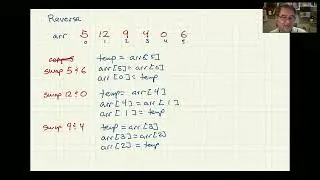 Reverse
arr 5 12 9 4 0 6
0 1 2 3 4 5
swap 5 & 6 temp = arr[5]
arr[5] = arr[0]
arr[0] = temp
swap 12 & 0 temp = arr[4]
arr[4] = arr[1]
arr[1] = temp
swap 9 & 4 temp = arr[3]
arr[3] = arr[2]
arr[2] = temp